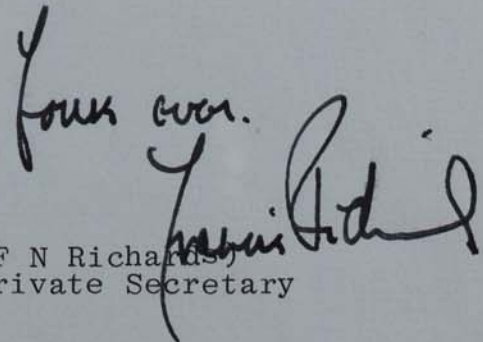 Yours ever.
Francis Richards
F N Richards)
rivate Secretary